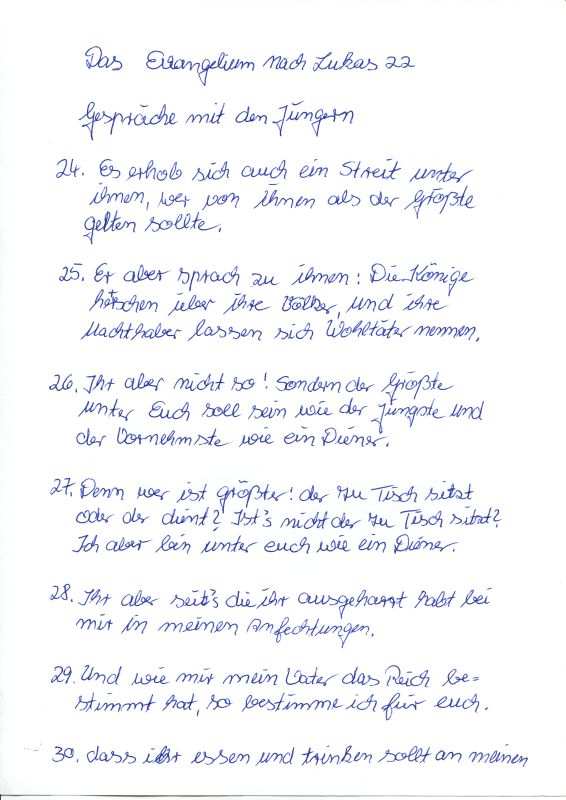 Das Evangelium nach Lukas 22
Gespräche mit den Jüngern
24. Es erhob sich auch ein Streit unter
ihnen, wer von ihnen als der Größte
gelten sollte.
25. Er aber sprach zu ihnen: Die Könige
herschen über ihre Völker, und ihre
Machthaber lassen sich Wohltäter nennen.
26. Ihr aber nicht so! Sondern der Größte
unter Euch soll sein wie der Jüngste und
der Vornehmste wie ein Diener.
27. Denn wer ist größter! der zu Tisch sitzt
oder der dient? Ist's nicht der zu Tisch sitzt?
Ich aber bin unter euch wie ein Diener.
28. Ihr aber seit's die ihr ausgeharrt habt bei
mir in meinen Anfechtungen.
29. Und wie mir mein Vater das Reich be=
stimmt hat, so bestimme ich für euch.
30. dass ihr essen und trinken sollt an meinen